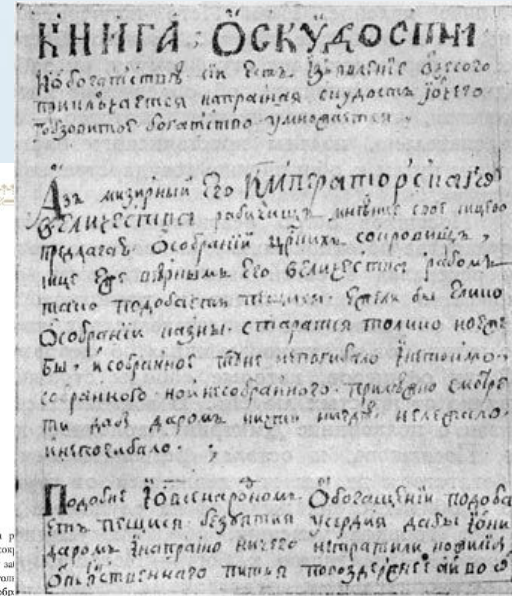 КНИГА, ОСКУДОСТИИ
Ибогатствѣ сїя Есть. Изъявление ѿчесого
приключается напрасная скудость Иѿчего
гобзовитое богатство умножается,
Азъ мизирный Его ИМператорскаго
Величества рабичищъ мнѣние свое сицево
предлагаѣ. Особранїй црскихъ сокровищъ,
сице Еже вѣрнымъ Его величества рабомъ
тако подобаетъ пещися. Ежели бы Елико
Особранїи казны. старатися толико неЕже
бы, и собранное тꙋне непогибало Інетокмо,
собранного. ноинесобранного. прилѣжно смотре
ти дабꙑ даромъ ничто нигдѣ. нележало.
інепогибало,
Подобне Иовсенародномъ. Обогащенїй подоба
етъ пещися. безъуятия усердия дабы Иони
даромъ Інапрасно ничего нетратили ножилѣб
Опьянственнаго питья повоздержнее аи во о